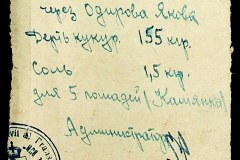 через Одирова Якова
Дерть кукур. 155 кгр.
Соль 1,5 кгр.
для 5 лошадей (Камянка)
Администратор